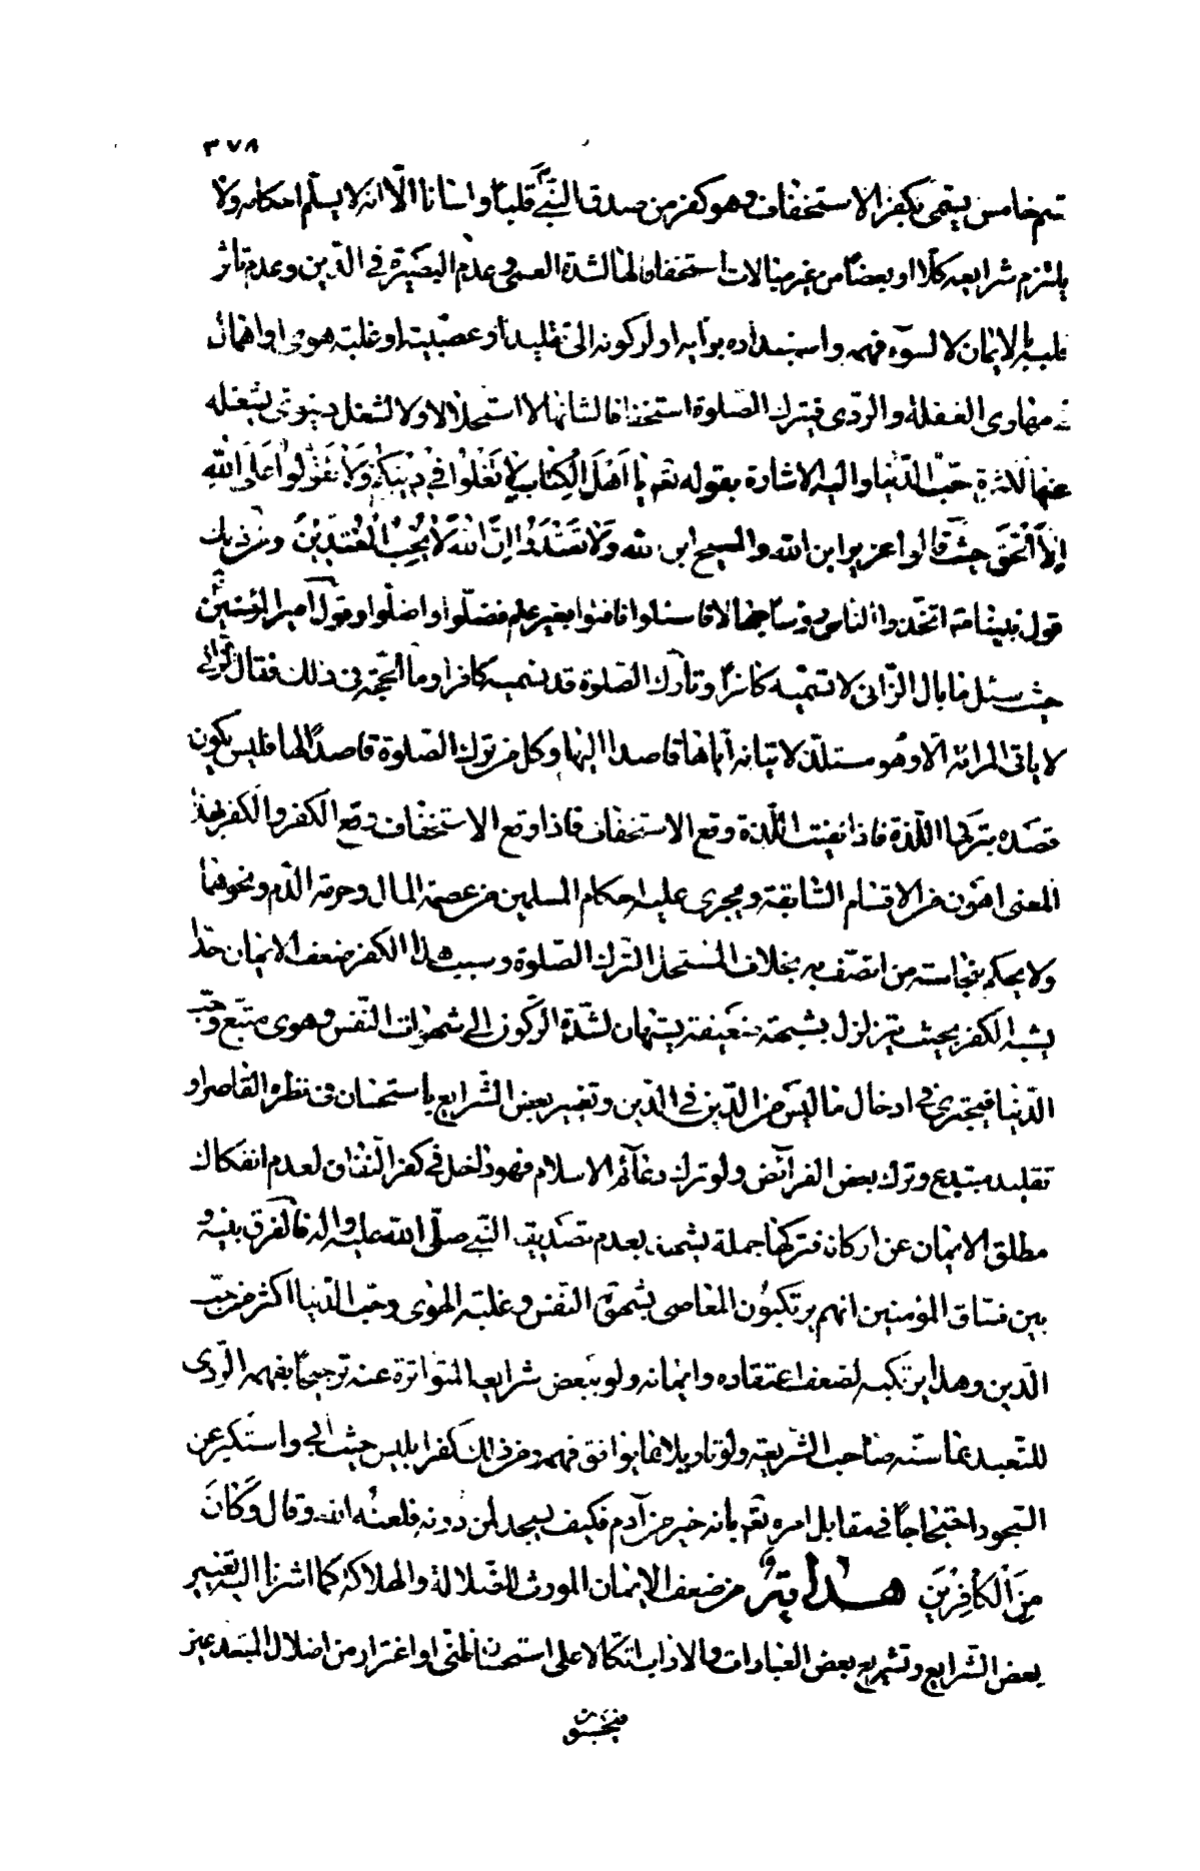 ٣٧٨
خامس يسمى بكفر الاستخفاف وهو كفر من صدق النبي قلبا ولسانا الا انه لا يسلم احكامه ولا
يلتزم شرايعه كلا او بعضا من غير مبالات استخفافا لها لشدة العمى وعدم البصيرة في الدين وعدم تاثر
قلبه بالايمان لا لسوء فهمه واستبداده برايه او لركونه الى تقليد او عصبية او غلبة هوى او اهماك
مهاوى الغفلة والردى فيترك الصلوة استخفافا لشانها لا استحلالا ولا لشغل دنيوى يشغله
عنها لاثرة حب الدنيا واليه الاشارة بقوله تعم يا اَهْلَ الْكِتابِ لا تَغْلُوا في دينِكُمْ وَلا تَقُولُوا عَلَى اللهِ
اِلَّا الْحَقَّ حيث قالوا عزير ابن الله والمسيح ابن الله وَلا تَعْتَدُوا اِنَّ اللهَ لا يُحِبُّ الْمُعْتَدينَ ومن ذلك
قول نبينا صم اتخذوا الناس رؤساء جهالا فاسئلوا فافتوا بغير علم فضلوا واضلوا وقول امير المؤمنين
حيث سئل ما بال الزانى لا تسميه كافرا وتارك الصلوة قد تسميه كافرا وما الحجة في ذلك فقال
لا ياتى المرائة الا وهو مستلذ لاتيانه اياها قاصدا اليها وكل من ترك الصلوة قاصدا لها فليس يكون
قصده بتركها اللذة فاذا نفيت اللذة وقع الاستخفاف فاذا وقع الاستخفاف وقع الكفر والكفر بهذا
المعنى اهون من الاقسام السابقة ويجرى عليه احكام المسلمين من عصمة المال وحرمة الدم ونحوهما
ولا يحكم بنجاسته من اتصف به بخلاف المستحل لترك الصلوة وسبب هذا الكفر ضعف الايمان حدا
يشبه الكفر بحيث يتزلزل بشبهة ضعيفة يستهان لشدة الركون الى شهوات النفس وهوى متبع وحب
الدنيا فيجترى في ادخال ما ليس من الدين في الدين وتغيير بعض الشرايع باستحسان في نظره القاصر او
تقليد مبتدع وترك بعض الفرائض ولو ترك دعائم الاسلام فهو داخل في كفر النفاق لعدم انفكاك
مطلق الايمان عن اركانه فتركها جملة يشهد بعدم تصديق النبي صلى الله عليه واله فالفرق بينه و
بين فساق المؤمنين انهم يرتكبون المعاصى بشهوة النفس وغلبة الهوى وحب الدنيا اكثر من حب
الدين وهذا يرتكبه لضعف اعتقاده وايمانه ولو ببعض شرايعه المتواترة عنه ترجيحا بفهمه الردى
للتعبد بما سنه صاحب الشريعة ولو تاويلا بما يوافق فهمه ومن ذلك كفر ابليس حيث ابى واستكبر عن
السجود احتجاجا في مقابل امره تعم بانه خير من آدم فكيف يسجد لمن دونه فلعنه الله وقال وَكانَ
مِنَ الْكافِرينَ هداية من ضعف الايمان المورث للضلالة والهلاكة كما اشرنا اليه تغيير
بعض الشرايع وتشريع بعض العبادات والاداب اتكالا على استحسان ظنى او اغترار من اضلال المبتدعين